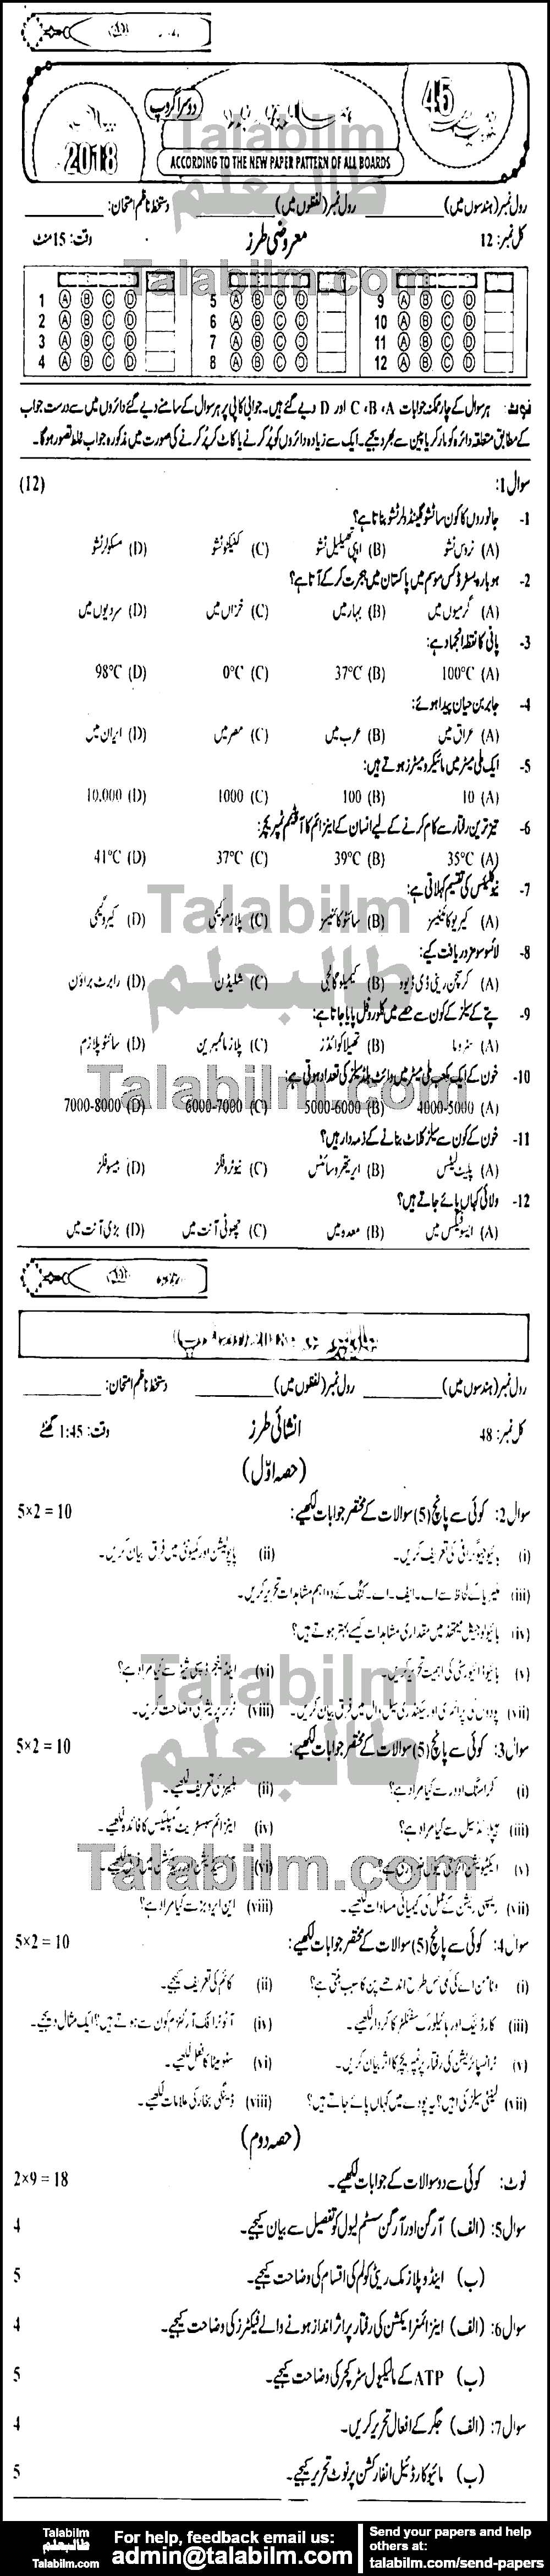 2018
دوسرا گروپ
45
ACCORDING TO THE NEW PAPER PATTERN OF ALL BOARDS
Talabilm
طالبعلم
رول نمبر (ہندسوں میں) ________ رول نمبر (لفظوں میں) ________ دستخط ناظم امتحان: ________
کل نمبر: 12 معروضی طرز وقت: 15 منٹ
Talabilm.com
1 A B C D 5 A B C D 9 A B C D
2 A B C D 6 A B C D 10 A B C D
3 A B C D 7 A B C D 11 A B C D
4 A B C D 8 A B C D 12 A B C D
نوٹ: ہر سوال کے چار ممکنہ جوابات C ، B ، A اور D دیے گئے ہیں۔ جوابی کاپی پر ہر سوال کے سامنے دیے گئے دائروں میں سے درست جواب
کے مطابق متعلقہ دائرہ کو مارکر یا پین سے بھر دیجیے۔ ایک سے زیادہ دائروں کو پُر کرنے یا کاٹ کر پُر کرنے کی صورت میں مذکورہ جواب غلط تصور ہوگا۔
سوال 1: (12)
1- جانوروں کا کون سا ٹشو گلینڈولر ٹشو بناتا ہے؟
(A) نروس ٹشو (B) اپی تھیلیل ٹشو (C) کنیکٹو ٹشو (D) مسکولر ٹشو
2- ہوبارہ بسٹرڈ کس موسم میں پاکستان میں ہجرت کر کے آتا ہے؟
(A) گرمیوں میں (B) بہار میں (C) خزاں میں (D) سردیوں میں
3- پانی کا نقطہ انجماد ہے:
(A) 100°C (B) 37°C (C) 0°C (D) 98°C
4- جابر بن حیان پیدا ہوئے:
(A) عراق میں (B) عرب میں (C) مصر میں (D) ایران میں
5- ایک ملی میٹر میں مائیکرو میٹرز ہوتے ہیں:
(A) 10 (B) 100 (C) 1000 (D) 10,000
6- تیز ترین رفتار سے کام کرنے کے لیے انسان کے اینزائم کا آپٹیمم ٹمپریچر:
(A) 35°C (B) 39°C (C) 37°C (D) 41°C
7- نیوکلیئس کی تقسیم کہلاتی ہے:
(A) کیریوکائنیسز (B) سائٹوکائنیسز (C) پلازموگیمی (D) کیروگیمی
8- لائسوسومز دریافت کیے:
(A) کرسچن رینی ڈی ڈیوو (B) کیمیلو گالجی (C) شلیڈن (D) رابرٹ براؤن
9- پتے کے سیلز کے کون سے حصے میں کلوروفل پایا جاتا ہے:
(A) سٹروما (B) تھیلاکوائڈز (C) پلازما ممبرین (D) سائٹوپلازم
10- خون کے ایک کیوبک ملی میٹر میں وائٹ بلڈ سیلز کی تعداد ہوتی ہے:
(A) 4000-5000 (B) 5000-6000 (C) 6000-7000 (D) 7000-8000
11- خون کے کون سے سیلز کلاٹ بنانے کے ذمہ دار ہیں؟
(A) پلیٹ لیٹس (B) ایریتھروسائٹس (C) نیوٹروفلز (D) بیسوفلز
12- ولائی کہاں پائے جاتے ہیں؟
(A) ایسوفیگس میں (B) معدہ میں (C) چھوٹی آنت میں (D) بڑی آنت میں
رول نمبر (ہندسوں میں) ________ رول نمبر (لفظوں میں) ________ دستخط ناظم امتحان: ________
کل نمبر: 48 انشائی طرز وقت: 1:45 گھنٹے
(حصہ اوّل)
سوال 2: کوئی سے پانچ (5) سوالات کے مختصر جوابات لکھیے: 5×2 = 10
(i) بائیوجیوگرافی کی تعریف کریں۔ (ii) پاپولیشن اور کمیونٹی میں فرق بیان کریں۔
(iii) ملیریا کے لحاظ سے اے۔ایف۔اے۔کنگ کے دو اہم مشاہدات تحریر کریں۔
(iv) بائیولوجیکل میتھڈ میں مقداری مشاہدات کیسے بہتر ہوتے ہیں؟
(v) بائیوڈائیورسٹی کی اہمیت تحریر کریں۔ (vi) اینڈینجرڈ سپی شیز سے کیا مراد ہے؟
(vii) پودوں کی پرائمری اور سیکنڈری سیل وال میں فرق بیان کریں۔ (viii) ٹرگر پریشر کی وضاحت کریں۔
سوال 3: کوئی سے پانچ (5) سوالات کے مختصر جوابات لکھیے: 5×2 = 10
(i) کراسنگ اوور سے کیا مراد ہے؟ (ii) تعریف لکھیے۔
(iii) ہیپلائڈ سیل سے کیا مراد ہے؟ (iv) اینزائم سبسٹریٹ کمپلیکس کا فائدہ لکھیے۔
(v) ایکٹیویشن انرجی کیوں ضروری ہے؟ (vi) میں لکھیے۔
(vii) ریسپی ریشن کے عمل کی کیمیائی مساوات لکھیے۔ (viii) این ایروبز سے کیا مراد ہے؟
سوال 4: کوئی سے پانچ (5) سوالات کے مختصر جوابات لکھیے: 5×2 = 10
(i) وٹامن اے کی کمی کس طرح اندھے پن کا سبب بنتی ہے؟ (ii) کائم کی تعریف کیجیے۔
(iii) کارڈیئک اور پائیلورک سفنکٹر کا کردار لکھیے۔ (iv) آٹوٹرافک آرگنزم کون سے ہوتے ہیں؟ ایک مثال دیجیے۔
(v) ٹرانسپائریشن کی رفتار پر ٹمپریچر کا اثر بیان کریں۔ (vi) سٹومیٹا کا فعل لکھیے۔
(vii) کمپینین سیلز کیا ہیں؟ یہ پودے میں کہاں پائے جاتے ہیں؟ (viii) ڈینگی بخار کی علامات لکھیے۔
(حصہ دوم)
نوٹ: کوئی سے دو سوالات کے جوابات لکھیے۔ 2×9 = 18
سوال 5: (الف) آرگن اور آرگن سسٹم لیول کو تفصیل سے بیان کیجیے۔ 4
(ب) اینڈوپلازمک ریٹی کولم کی اقسام کی وضاحت کیجیے۔ 5
سوال 6: (الف) اینزائمز ایکشن کی رفتار پر اثر انداز ہونے والے فیکٹرز کی وضاحت کیجیے۔ 4
(ب) ATP کے مالیکیول سٹرکچر کی وضاحت کیجیے۔ 5
سوال 7: (الف) جگر کے افعال تحریر کریں۔ 4
(ب) مائیوکارڈیئل انفارکشن پر نوٹ تحریر کیجیے۔ 5
Talabilm
طالبعلم
Talabilm.com
For help, feedback email us:
admin@talabilm.com
Send your papers and help others at:
talabilm.com/send-papers